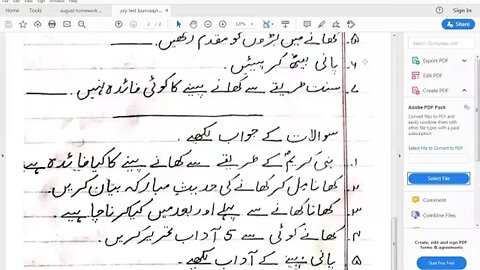 august homework ...
july test Islamiaat...
Sign In
2 / 2
۵۔ کھانے میں بڑوں کو مقدم رکھیں۔
۶۔ پانی بیٹھ کر پیئں۔
۷۔ سنت طریقے سے کھانے پینے کا کوئی فائدہ نہیں۔
سوالات کے جواب لکھیے۔
۱۔ نبی کریمؐ کے طریقے سے کھانے پینے کا کیا فائدہ ہے
۲۔ کھانا مل کر کھانے کی حدیثِ مبارکہ بیان کریں۔
۳۔ کھانا کھانے سے پہلے اور بعد میں کیا کرنا چاہیے۔
۴۔ کھانے کوئی سے 5 آداب تحریر کریں۔
۵۔ پانی پینے کے آداب لکھیے۔
Export PDF
Edit PDF
Create PDF
Adobe PDF Pack
Convert files to PDF and easily combine them with other file types with a paid subscription
Select File to Convert to PDF
Select File
Comment
Combine Files
Create, edit and sign PDF forms & agreements
Start Free Trial